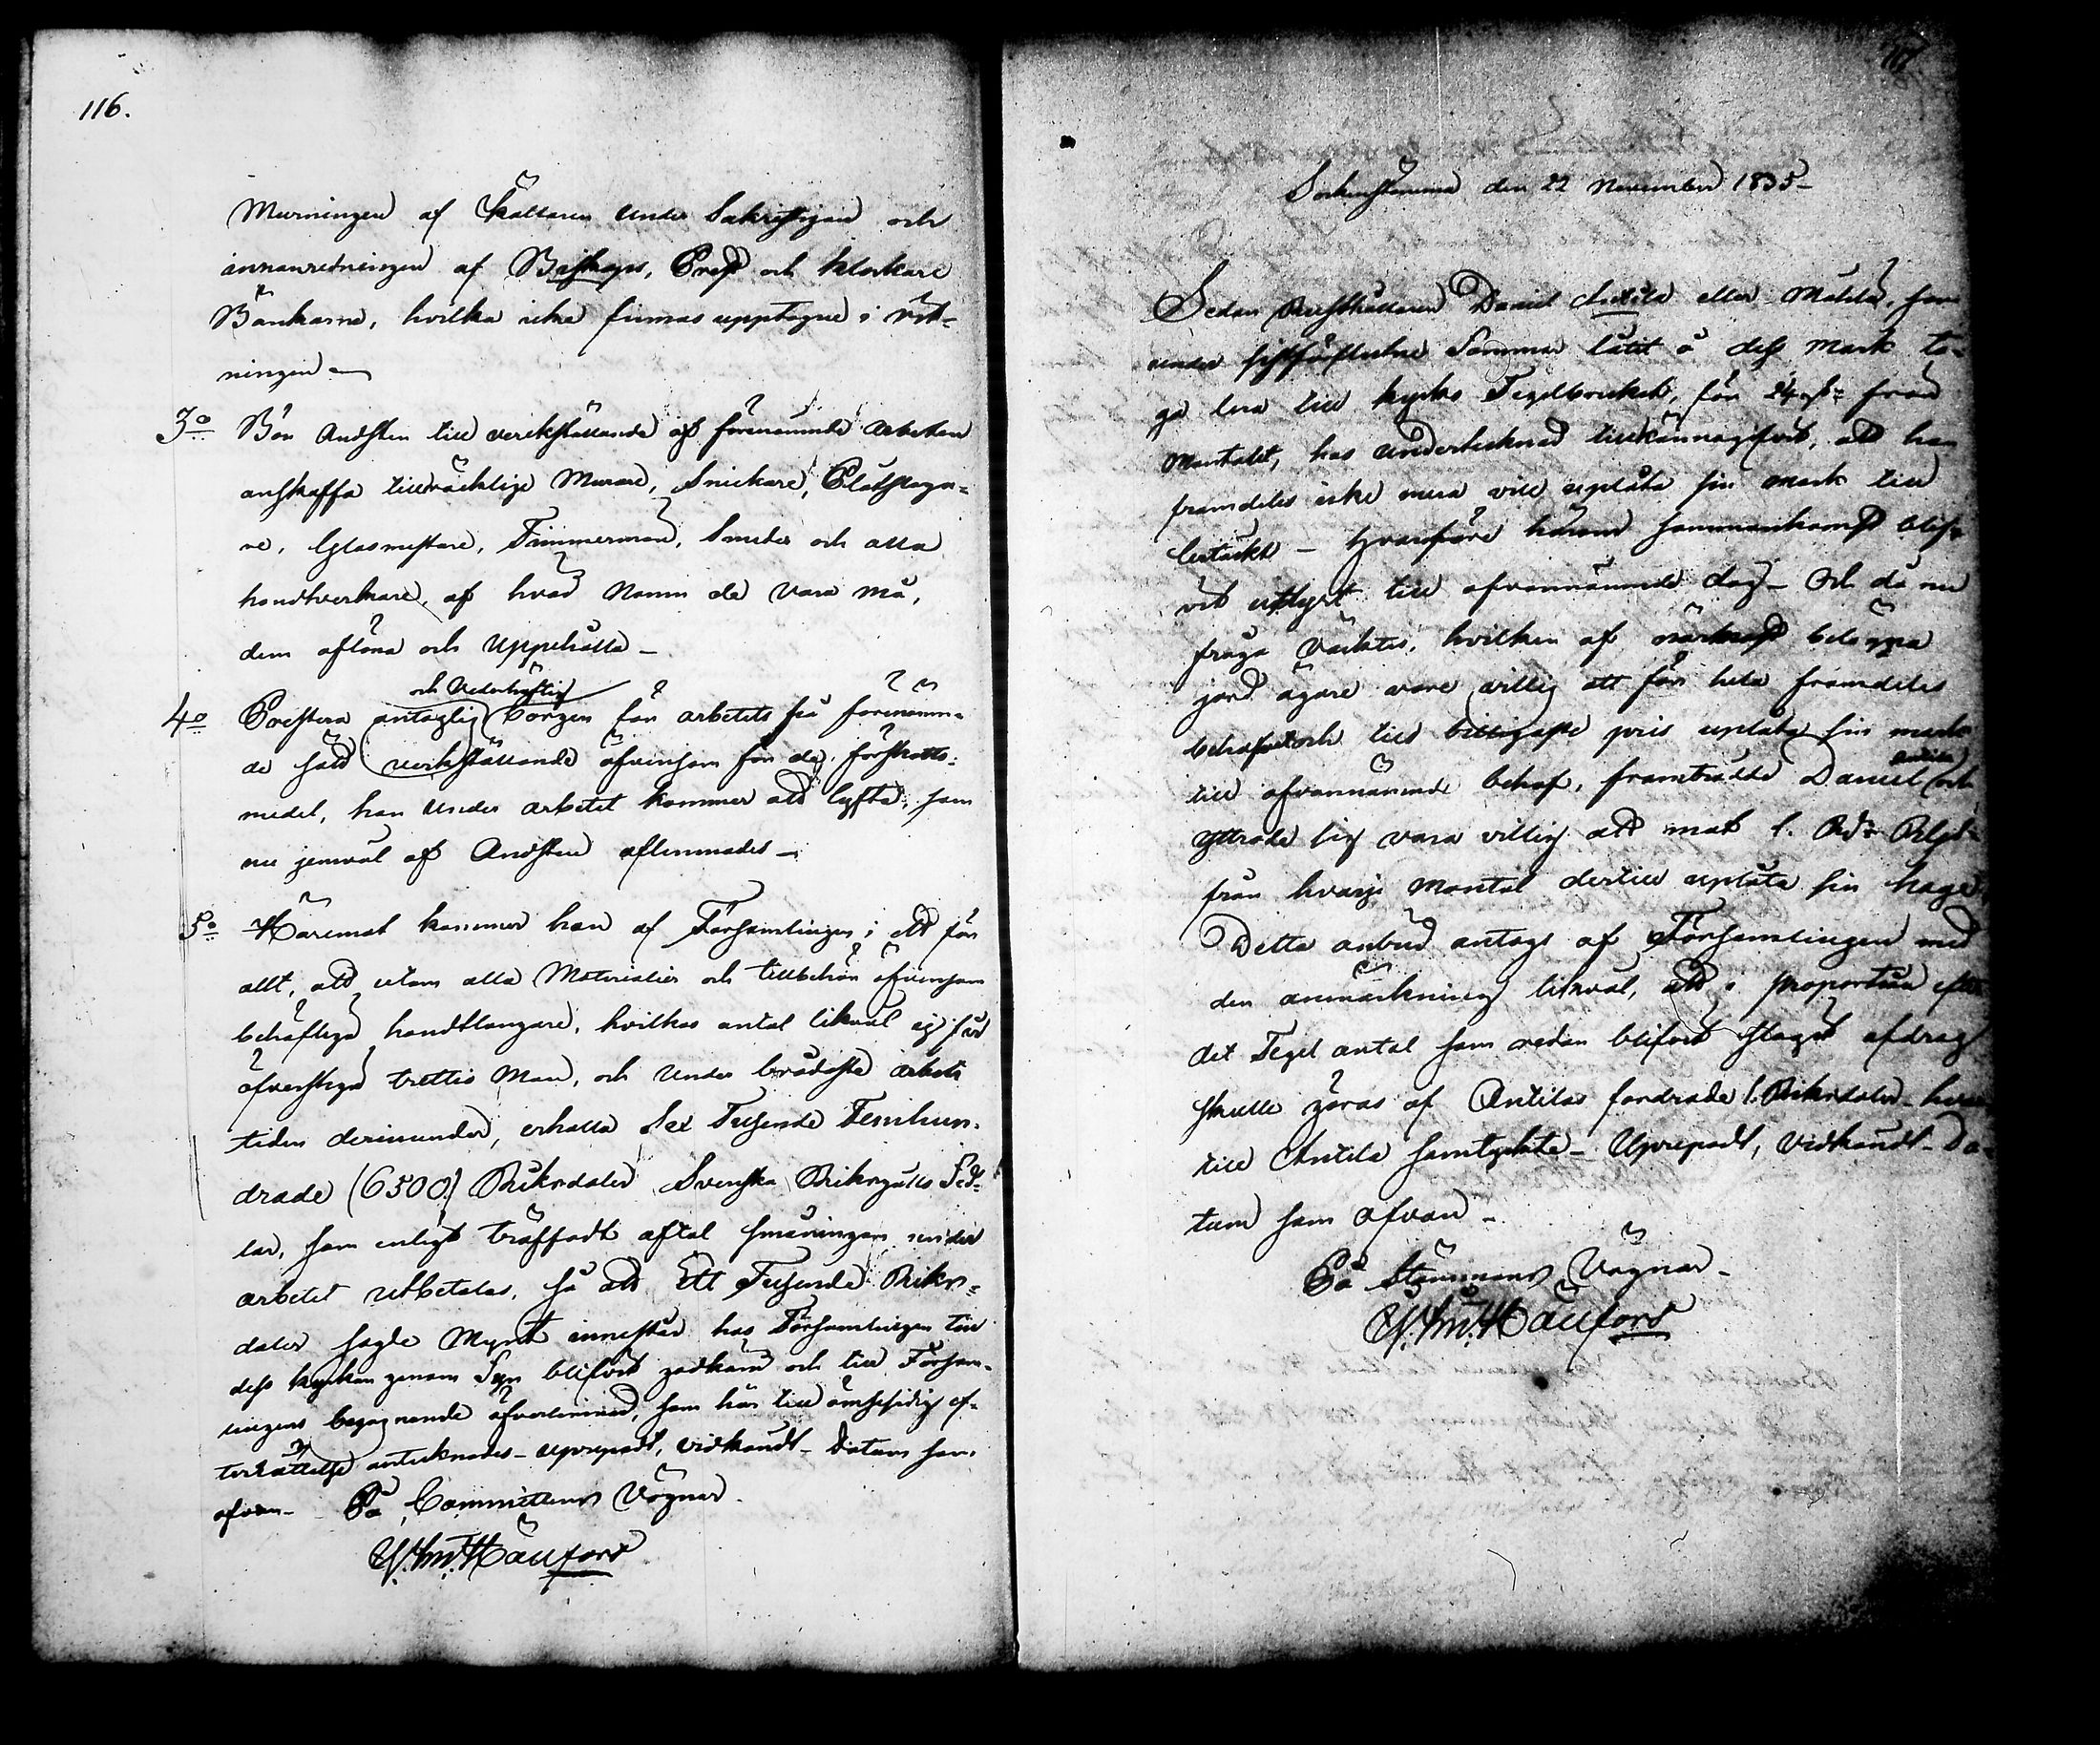 116.
Murningen af Källaren under Sakristigan och
innanredningen af Biskops, Prest och klockare
Bänkarne, hvilka icke finnas upptagne i rit-
ningen —
3:o Bör Andsten till verkställande af förenämnde arbeten
anskaffa tillräcklige Murare, Snickare, Plåtslaga-
re, Glasmestare, Timmerman, Smeder och alla
handtverkare, af hvad Namn de vara må,
dem aflöna och uppehålla —
och Vederhäftig
4:o Prestera antaglig borgen för arbetets på förenämn-
de sätt verkställande äfvensom för de förskotts-
medel, han under arbetet kommer att lyfta, som
nu jemväl af Andsten aflemnades —
5:o Häremot kommer han af Församlingen i ett för
allt, att utom alla Materialier och tillbehör äfvensom
behöflige handtlangare, hvilkas antal likväl ej får
öfverstiga trettio Man, och under brådaste arbets
tiden derinunder, erhålla Sex Tusende Femhun-
drade (6500) Riksdaler Svenska Riksgälds Sed-
lar, som enligt träffadt aftal småningom under
arbetet utbetalas, så att Ett Tusende Riks-
daler sagde Mynt innestår hos Församlingen till
dess kyrkan genom Syn blifvit godkänd och till Försam-
lingens begagnande öfverlemnad, som här till ömsesidig ef-
terrättelse antecknades — uprepadt, vidkändt — Datum som
ofvan — På Committéens Vägnar
117.
Sockenstämma den 22 November 1835 —
Sedan Daniel Antila eller Mätilä, som
under sistförflutne Sommar låtit å dess mark ta-
ga lera till kyrko Tegelbruket, för 24 från
Mantalet, hos undertecknad tillkännagifvit, att han
framdeles icke mera vill uplåta sin mark till
lertäckt — hvarföre härom sammankomst blif-
vit utlyst till ofvannämnde dag — Och då nu
fråga väcktes, hvilken af närmast belägna
jord ägare vore villig att för hela framdeles
behofvet och till billigaste pris uplåta sin mark
Antila
till ofvannämnde behof, framträdde Daniel och
yttrade sig vara villig att mot 1. Rd:r Rgld
från hvarje Mantal dertill uplåta sin hage.
Detta anbud antogs af Församlingen med
den anmärkning likväl, att i proportion efter
det Tegel antal som redan blifvit slaget afdrag
skulle göras af Antilas fordrade 1. Riksdaler —
till Antila samtyckte — Uprepadt, vidkändt — Da-
tum som ofvan —
På Stämmans Vägnar —